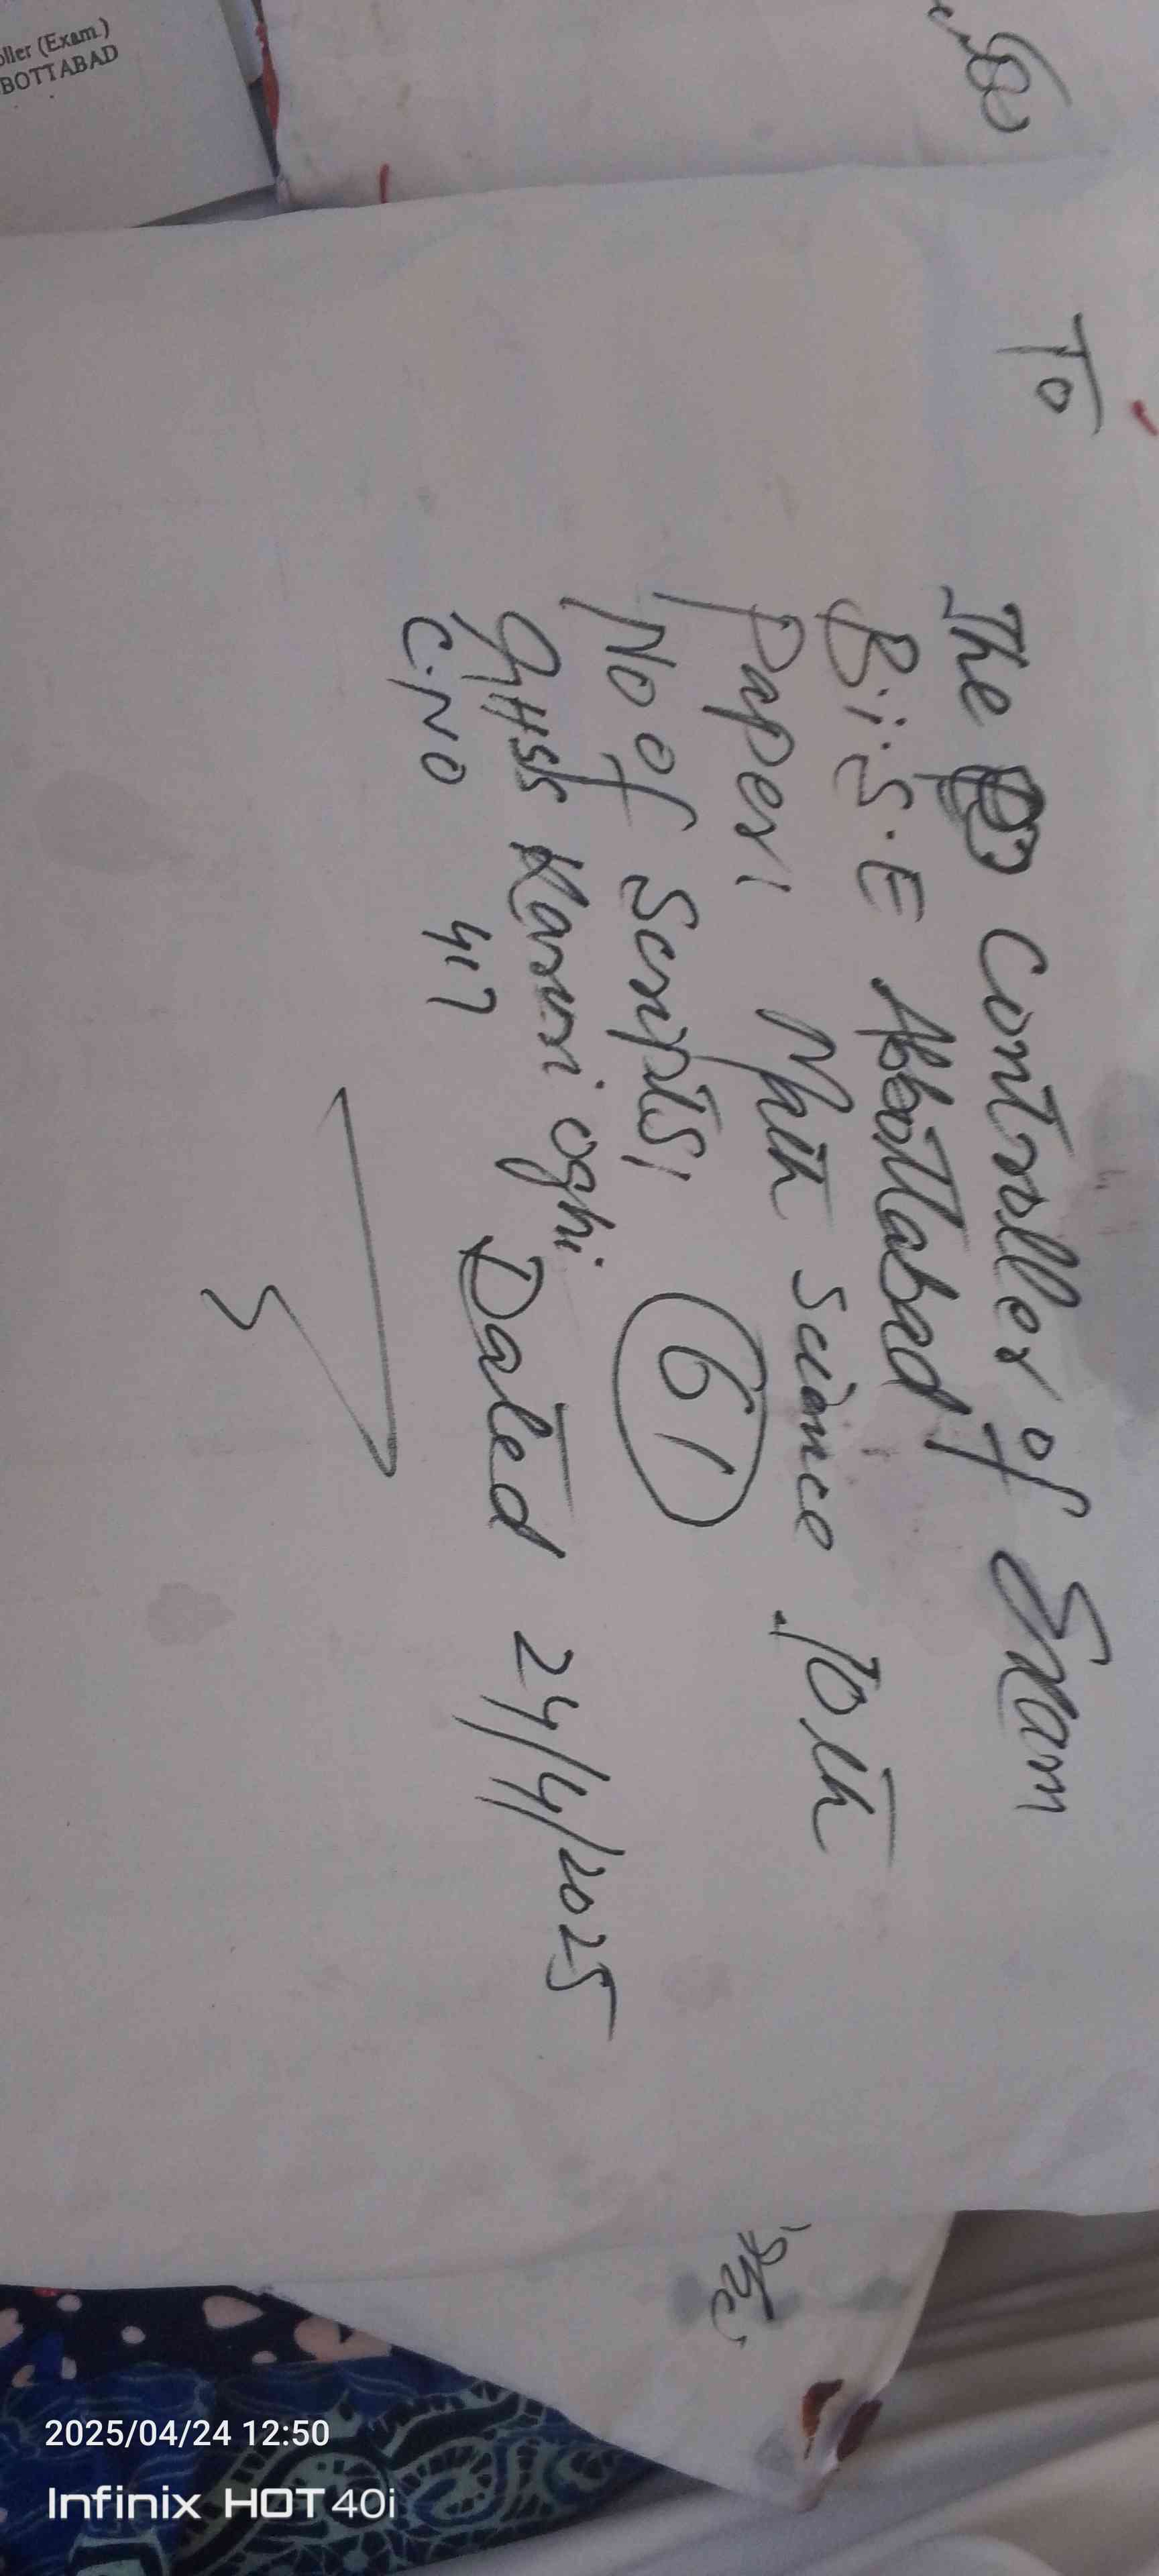 To
The Controller of Exam
B.i.S.E Abbottabad
Paper: Math Science 10th
No of Scripts: 61
GHSS Karori oghi
C.NO 417 Dated 24/4/2025
oller (Exam.)
BOTTABAD
2025/04/24 12:50
Infinix HOT 40i